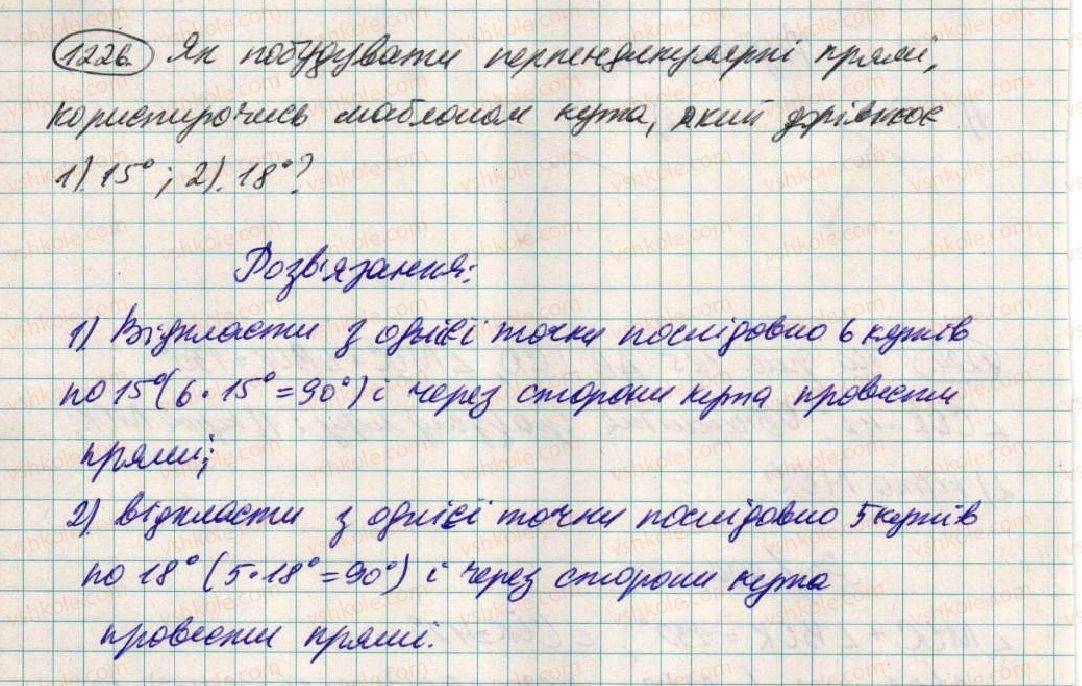 1226. Як побудувати перпендикулярні прямі,
користуючись шаблоном кута, який дорівнює
1). 15° ; 2). 18°?
Розв'язання:
1) Відкласти з однієї точки послідовно 6 кутів
по 15° (6 · 15° = 90°) і через сторони кута провести
прямі;
2). відкласти з однієї точки послідовно 5 кутів
по 18° (5 · 18° = 90°) і через сторони кута
провести прямі.